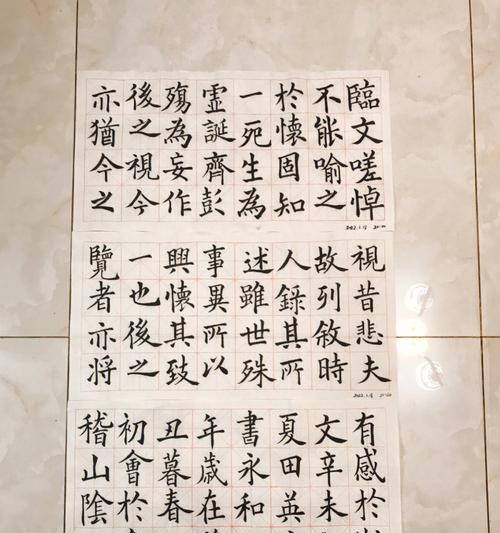 臨文嗟悼
不能喻之
於懷固知
一死生為
虛誕齊彭
殤為妄作
後之視今
亦猶今之
2022.1.17
視昔悲夫
故列敘時
人錄其所
述雖世殊
事異所以
興懷其致
一也後之
覽者亦將
2022.1.18
有感於
文辛未
夏田英
書永和
年歲在
丑暮春
初會於
稽山陰